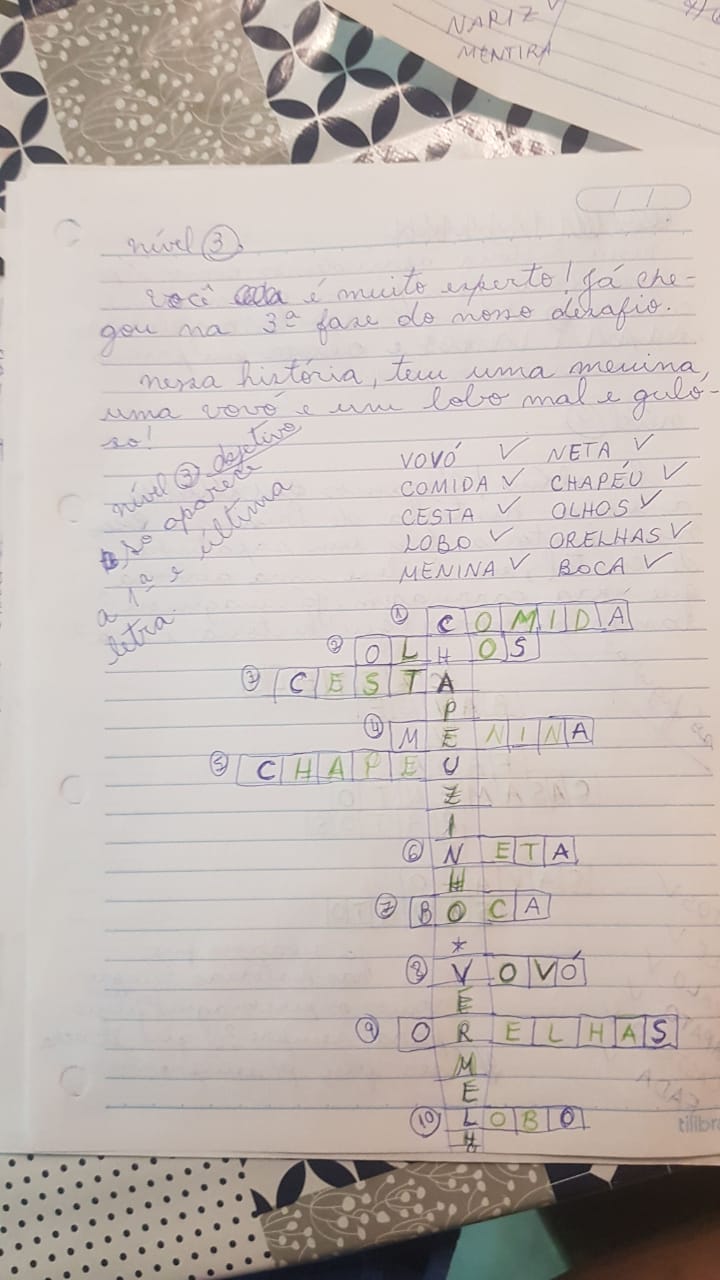 NARIZ ✓
MENTIRA
nível ③.
você é muito experto! Já che-
gou na 3ª fase do nosso desafio.
nessa história, tem uma menina,
uma vovó e um lobo mal e guló-
so!
nível ③ objetivo
só aparece
a 1ª e última
letra.
VOVÓ ✓ NETA ✓
COMIDA ✓ CHAPÉU ✓
CESTA ✓ OLHOS ✓
LOBO ✓ ORELHAS ✓
MENINA ✓ BOCA ✓
① COMIDA
② OLHOS
③ CESTA
P
④ MENINA
⑤ CHAPEU
Z
I
⑥ NETA
H
⑦ BOCA
*
⑧ VOVÓ
E
⑨ ORELHAS
M
E
⑩ LOBO
H
tilibra